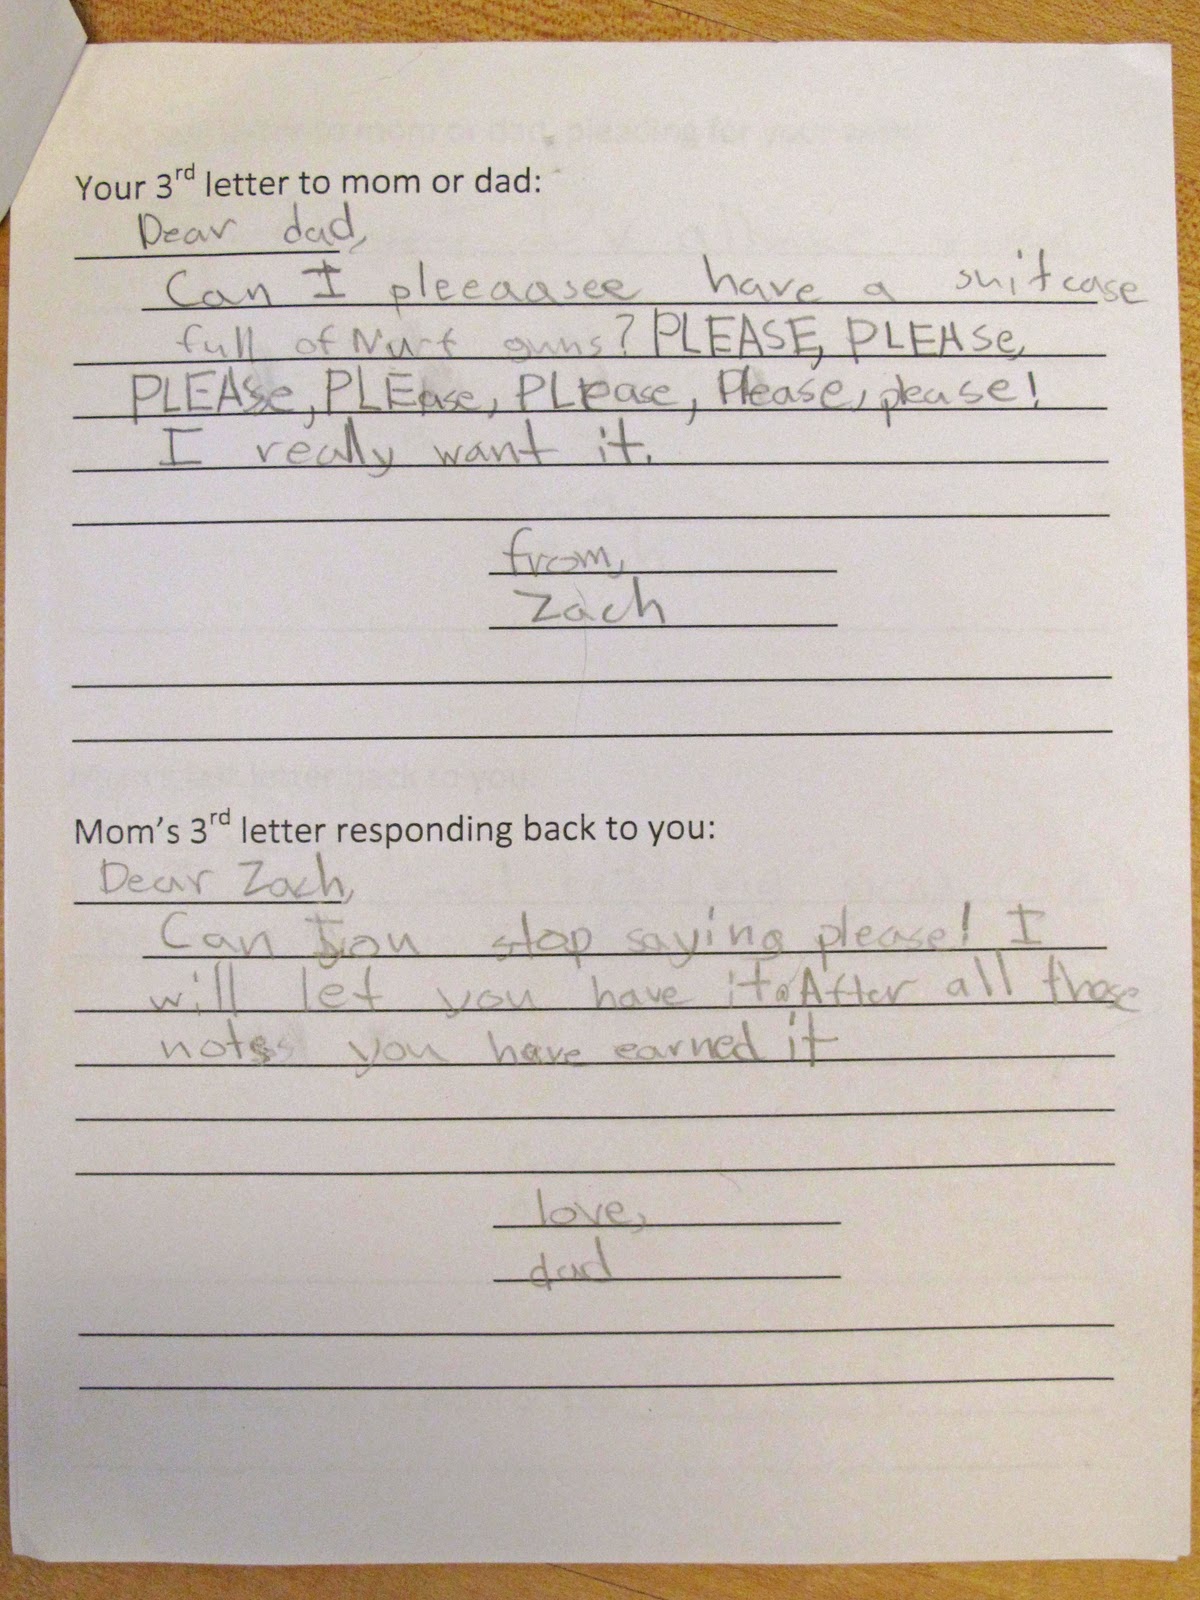 Your 3rd letter to mom or dad:
Dear dad,
Can I pleeaasee have a suitcase
full of Nurf guns? PLEASE, PLEASe,
PLEASe, PLEease, PLEease, Please, please!
I really want it.
from,
Zach
Mom's 3rd letter responding back to you:
Dear Zach,
Can you stop saying please! I
will let you have it. After all those
notes you have earned it
love,
dad